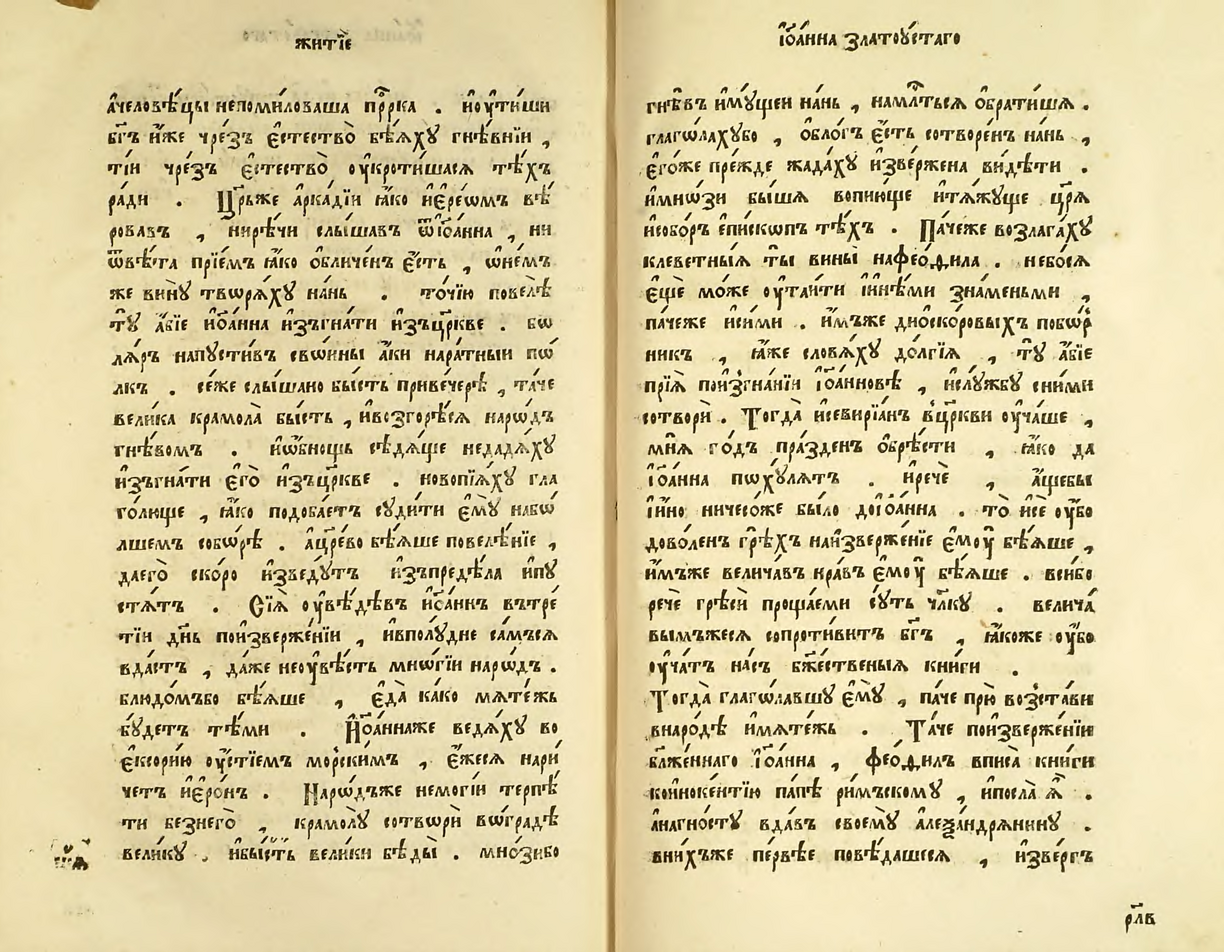 житїе
а҆человѣ́цы непомиловаша прⷪ҇рка . и҆оу҆тиши
бг҃ъ и҆́же чре́зъ є҆стество̀ бѣ́ѧхꙋ гнѣ́внїи ,
тїи чре́зъ є҆стество̀ оу҆кротишасѧ тѣ́хъ
ради . Цр҃ьже арка́дїи ꙗ҆́ко і҆ере́ѡмъ вѣ́
ровавъ , нирѣ́чи слы́шавъ ѿі҆ѡа́нна , ни
ѿвѣ́та прїе́мъ ꙗ҆́ко о҆бличе́нъ є҆́сть , ѡ҆не́мъ
же винꙋ̀ твѡрѧ́хꙋ на́нь . то́чїю повелѣ̀
тꙋ̀ а҆́бїе і҆ѡа́нна и҆зъгна́ти и҆зъцр҃кве . бѡ
лѧ́ръ напꙋсти́въ свѡи́ны а҆́ки нара́тныи пѡ
лкъ . се́же слы́шано бы́сть привече́рѣ , та́че
велика крамола̀ бы́сть , и҆возгорѣ́сѧ наро́дъ
гнѣ́вомъ . и҆ѡ҆бно́щь сѣдѧ́ще недадѧ́хꙋ
и҆зъгна́ти є҆го̀ и҆зъцр҃кве . новопїѧ́хꙋ гла
го́люще , ꙗ҆́ко подоба́етъ сꙋди́ти є҆мꙋ̀ набѡ́
лшемъ собѡ́рѣ . а҆цр҃ево бѣ́ѧше повелѣ́нїе ,
даего̀ ско́ро и҆зведꙋ́тъ и҆зъпредѣ́ла и҆пꙋ
стѧ́тъ . Сїѧ̀ оу҆вѣ́дѣвъ і҆ѡа́ннъ вътре́
тїи дн҃ь пои҆зверже́нїи , и҆вполꙋ́дне са́мъсѧ
вда́стъ , да́же неоу҆вѣ́сть мно́гїи наро́дъ .
блюдо́мъбо бѣ́ѧше , є҆да̀ ка́ко мѧте́жь
бꙋ́детъ тѣ́ми . І҆ѡа́ннаже ведѧ́хꙋ во
є҆ксорию оу҆́стїемъ морски́мъ , є҆́жесѧ нари
че́тъ і҆еро́нъ . Наро́дъже немогїи терпѣ́
ти безнего̀ , крамолꙋ̀ сотвори̂ вогра́дѣ
великꙋ . и҆бы́сть велики бѣ́ды̀ . мно́зибо
і҆ѡа́нна златоꙋ́стаго
гнѣ́въ и҆мꙋ́щеи на́нь , нами́лтьсѧ о҆брати́шѧ .
глаго́лахꙋбо , о҆бло́гъ є҆́сть сотворе́нъ на́нь ,
є҆го́же пре́жде жада́хꙋ и҆зве́ржена ви́дѣти .
и҆мно́зи бы́шѧ вопию́ще и҆тѧ́жꙋще цр҃ѧ̀
и҆собо́ръ є҆пи́скѡпъ тѣ́хъ . Па́чеже возлага́хꙋ
клеветны́ѧ ты̀ вины̀ наѳео́фила . небосѧ̀
є҆щѐ може оу҆таи́ти і҆и҆нѣ́ми зна́меньми ,
па́чеже и҆си́ми . и҆́мъже дио́скоровыхъ побо́р
никъ , ꙗ҆́же словѧ́хꙋ до́лгїѧ , тꙋ̀ а҆́бїе
прїѧ̀ пои҆згна́нїи і҆ѡа́нновѣ , и҆слꙋ́жбꙋ сни́ми
сотворѝ . Тогда̀ и҆севирїа́нъ вц҃ркви оу҆ча́ше ,
мнѧ̀ го́дъ пра́зденъ о҆брѣсти , ꙗ҆́ко да
і҆ѡа́нна похꙋ́лѧтъ . и҆речѐ , а҆́щебы
і҆́но ничесо́же было доі҆ѡа́нна . то и҆се оу҆бо
дово́ленъ грѣ́хъ наи҆зверже́нїе є҆моу̀ бѣ́ѧше ,
и҆́мъже величавъ нра́въ є҆моу̀ бѣ́ѧше . вси́бо
рече грѣси проща́еми сꙋ́ть чл҃кꙋ . велича́
вымъжесѧ сопроти́витъ бг҃ъ , ꙗ҆́коже оу҆бо
оу҆ча́тъ на́съ бж҃е́ственыѧ кни́ги .
Тогда̀ глаго́лавшꙋ є҆мꙋ̀ , па́че прю возста́ви
внаро́дѣ и҆мѧте́жь . Та́че пои҆зверже́нїи
блаже́ннаго і҆ѡа́нна , ѳео́филъ вписа̀ кни́ги
коино́кентїю па́пѣ ри́мъскомꙋ , и҆посла̀ ѧ҆̀ .
анагно́стꙋ вда́въ своемꙋ а҆леѯандрѧ́нинꙋ .
вни́хъже пе́рвѣе повѣ́дашесѧ , и҆зве́ргъ
рл҃в